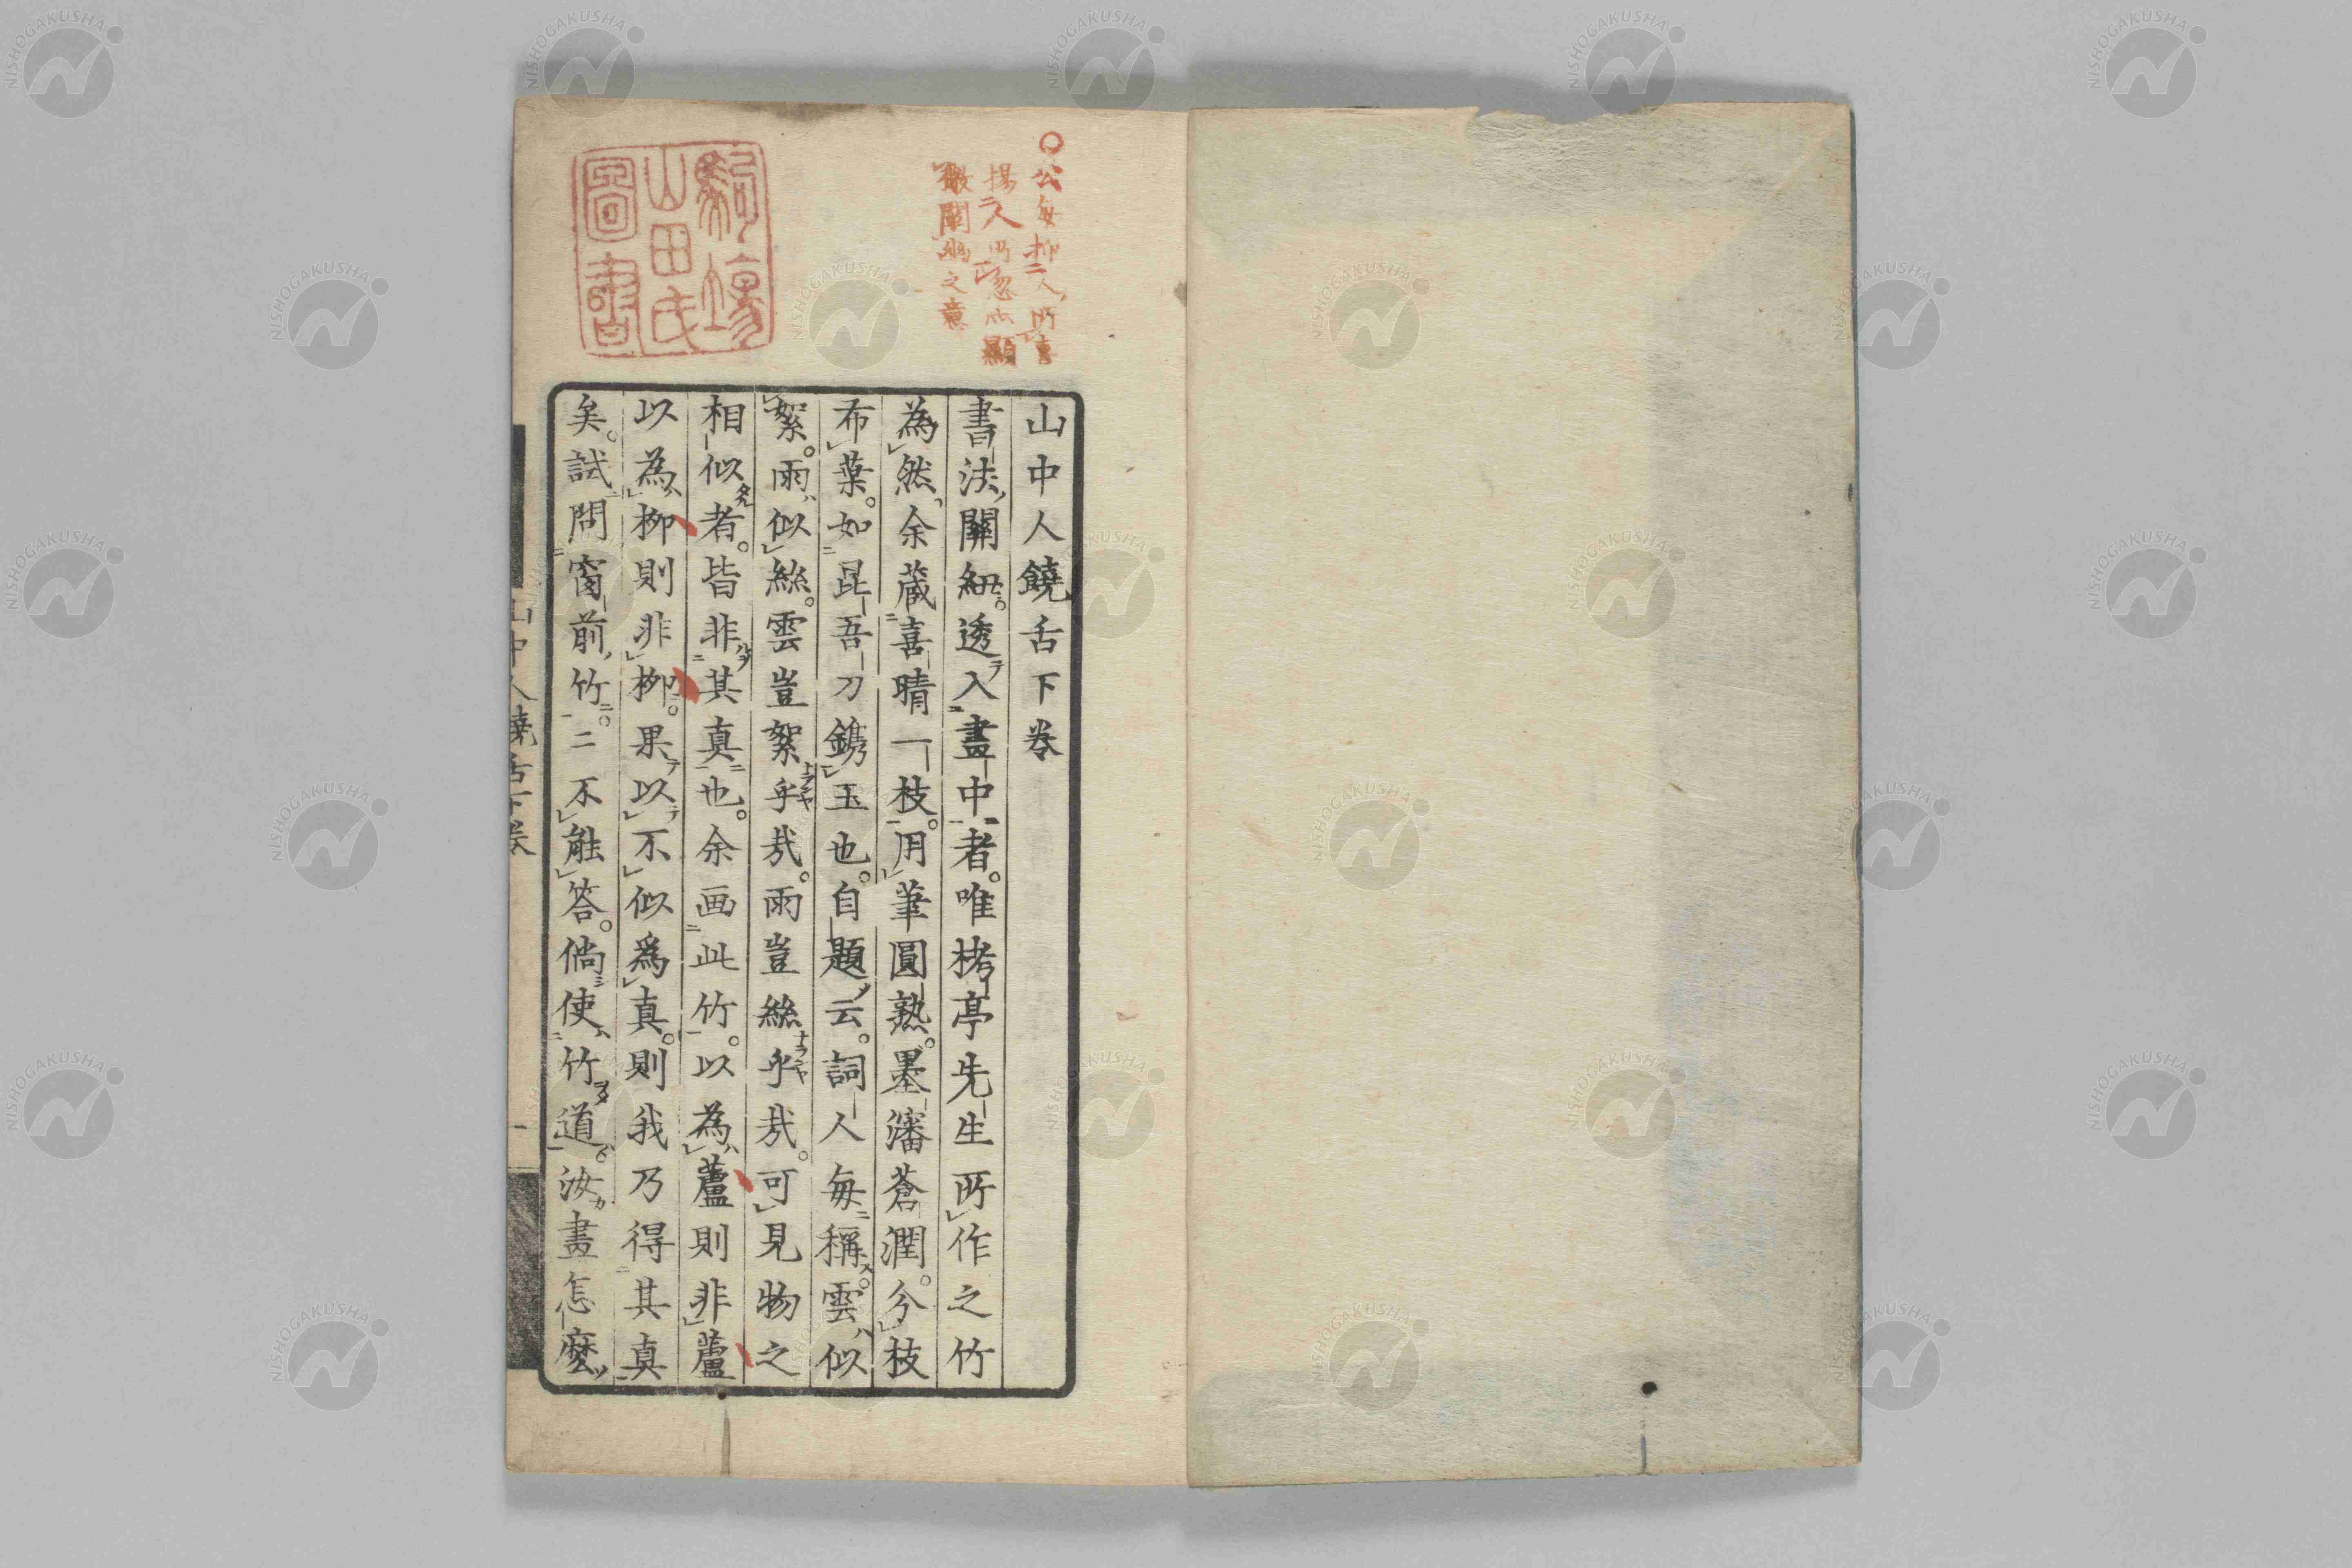 〇公毎抑人所喜
揚人所忽似顯
微闡幽之意
駒場
山田氏
圖書
山中人饒舌下卷
書法關紐透入畫中者。唯栲亭先生所作之竹
為然余藏喜晴一枝。用筆圓熟。墨瀋蒼潤。分枝
布葉。如昆吾刀鐫玉也。自題云。詞人每稱。雲似
絮。雨似絲。雲豈絮乎哉。雨豈絲乎哉。可見物之
相似者。皆非其真也。余画此竹。以為蘆則非蘆
以為柳則非柳。果以不似爲真。則我乃得其真
矣。試問窗前竹。二不能答。倘使竹道。汝畫怎麼
山中人饒舌下卷
一
NISHOGAKUSHA